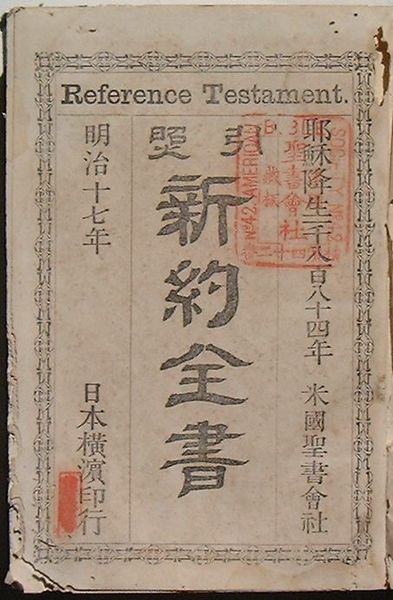 Reference Testament.
耶穌降生一千八百八十四年 米國聖書會社
引照
新約全書
明治十七年 日本橫濱印行
聖書會社
AMERICAN